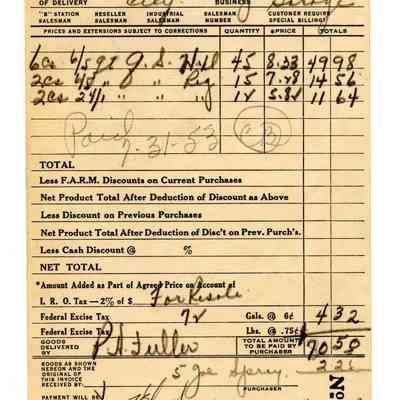 OF DELIVERY City BUSINESS Garage
"B" STATION SALESMAN RESELLER SALESMAN INDUSTRIAL SALESMAN SALESMAN NUMBER CUSTOMER REQUIRE SPECIAL BILLING?
PRICES AND EXTENSIONS SUBJECT TO CORRECTIONS QUANTITY @PRICE TOTALS
6 cs 6/5 qt G. S. 45 8.33 49 98
2 cs 6/5 " " Reg 15 7.28 14 56
2 cs 24/1 " " " 12 5.82 11 64
Paid
7-31-53
TOTAL
Less F.A.R.M. Discounts on Current Purchases
Net Product Total After Deduction of Discount as Above
Less Discount on Previous Purchases
Net Product Total After Deduction of Disc't on Prev. Purch's.
Less Cash Discount @ %
NET TOTAL
*Amount Added as Part of Agreed Price on Account of
I. R. O. Tax—2% of $ For Resale
Federal Excise Tax 72 Gals. @ 6¢ 4 32
Federal Excise Tax Lbs. @ .75¢
GOODS DELIVERED BY P. H. Fuller TOTAL AMOUNT TO BE PAID BY PURCHASER 70 58
GOODS AS SHOWN HEREON AND THE ORIGINAL OF THIS INVOICE RECEIVED BY: 5 Joe PURCHASER
PAYMENT WILL BE
No